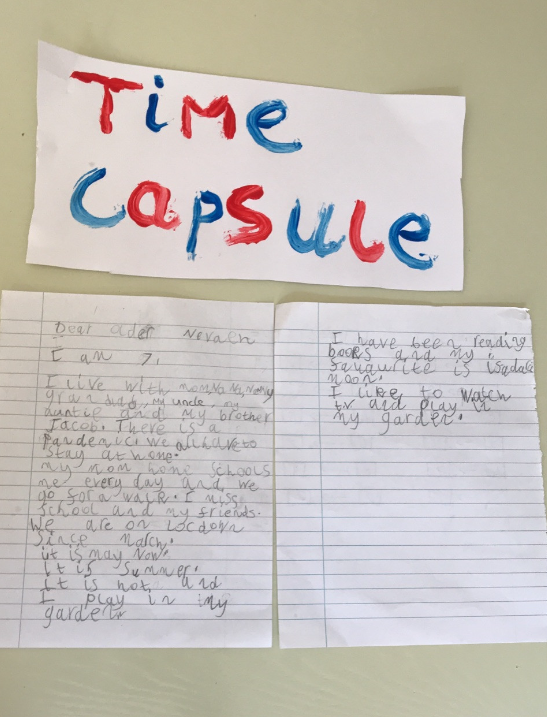 Time
Capsule
Dear older Nevaeh
I am 7.
I live with mom, my
gran dad, my uncle, my
auntie and my brother
Jacob. There is a
Pandemic. we all have to
stay at home.
my mom home schools
me every day and we
go for a walk. I miss
school and my friends.
we are on locdown
since march.
it is may Now.
it is summer.
it is hot and
I play in my
garden
I have been reading
books and my
favourite is isadole
moon.
I like to watch
tv and play in
my garden.